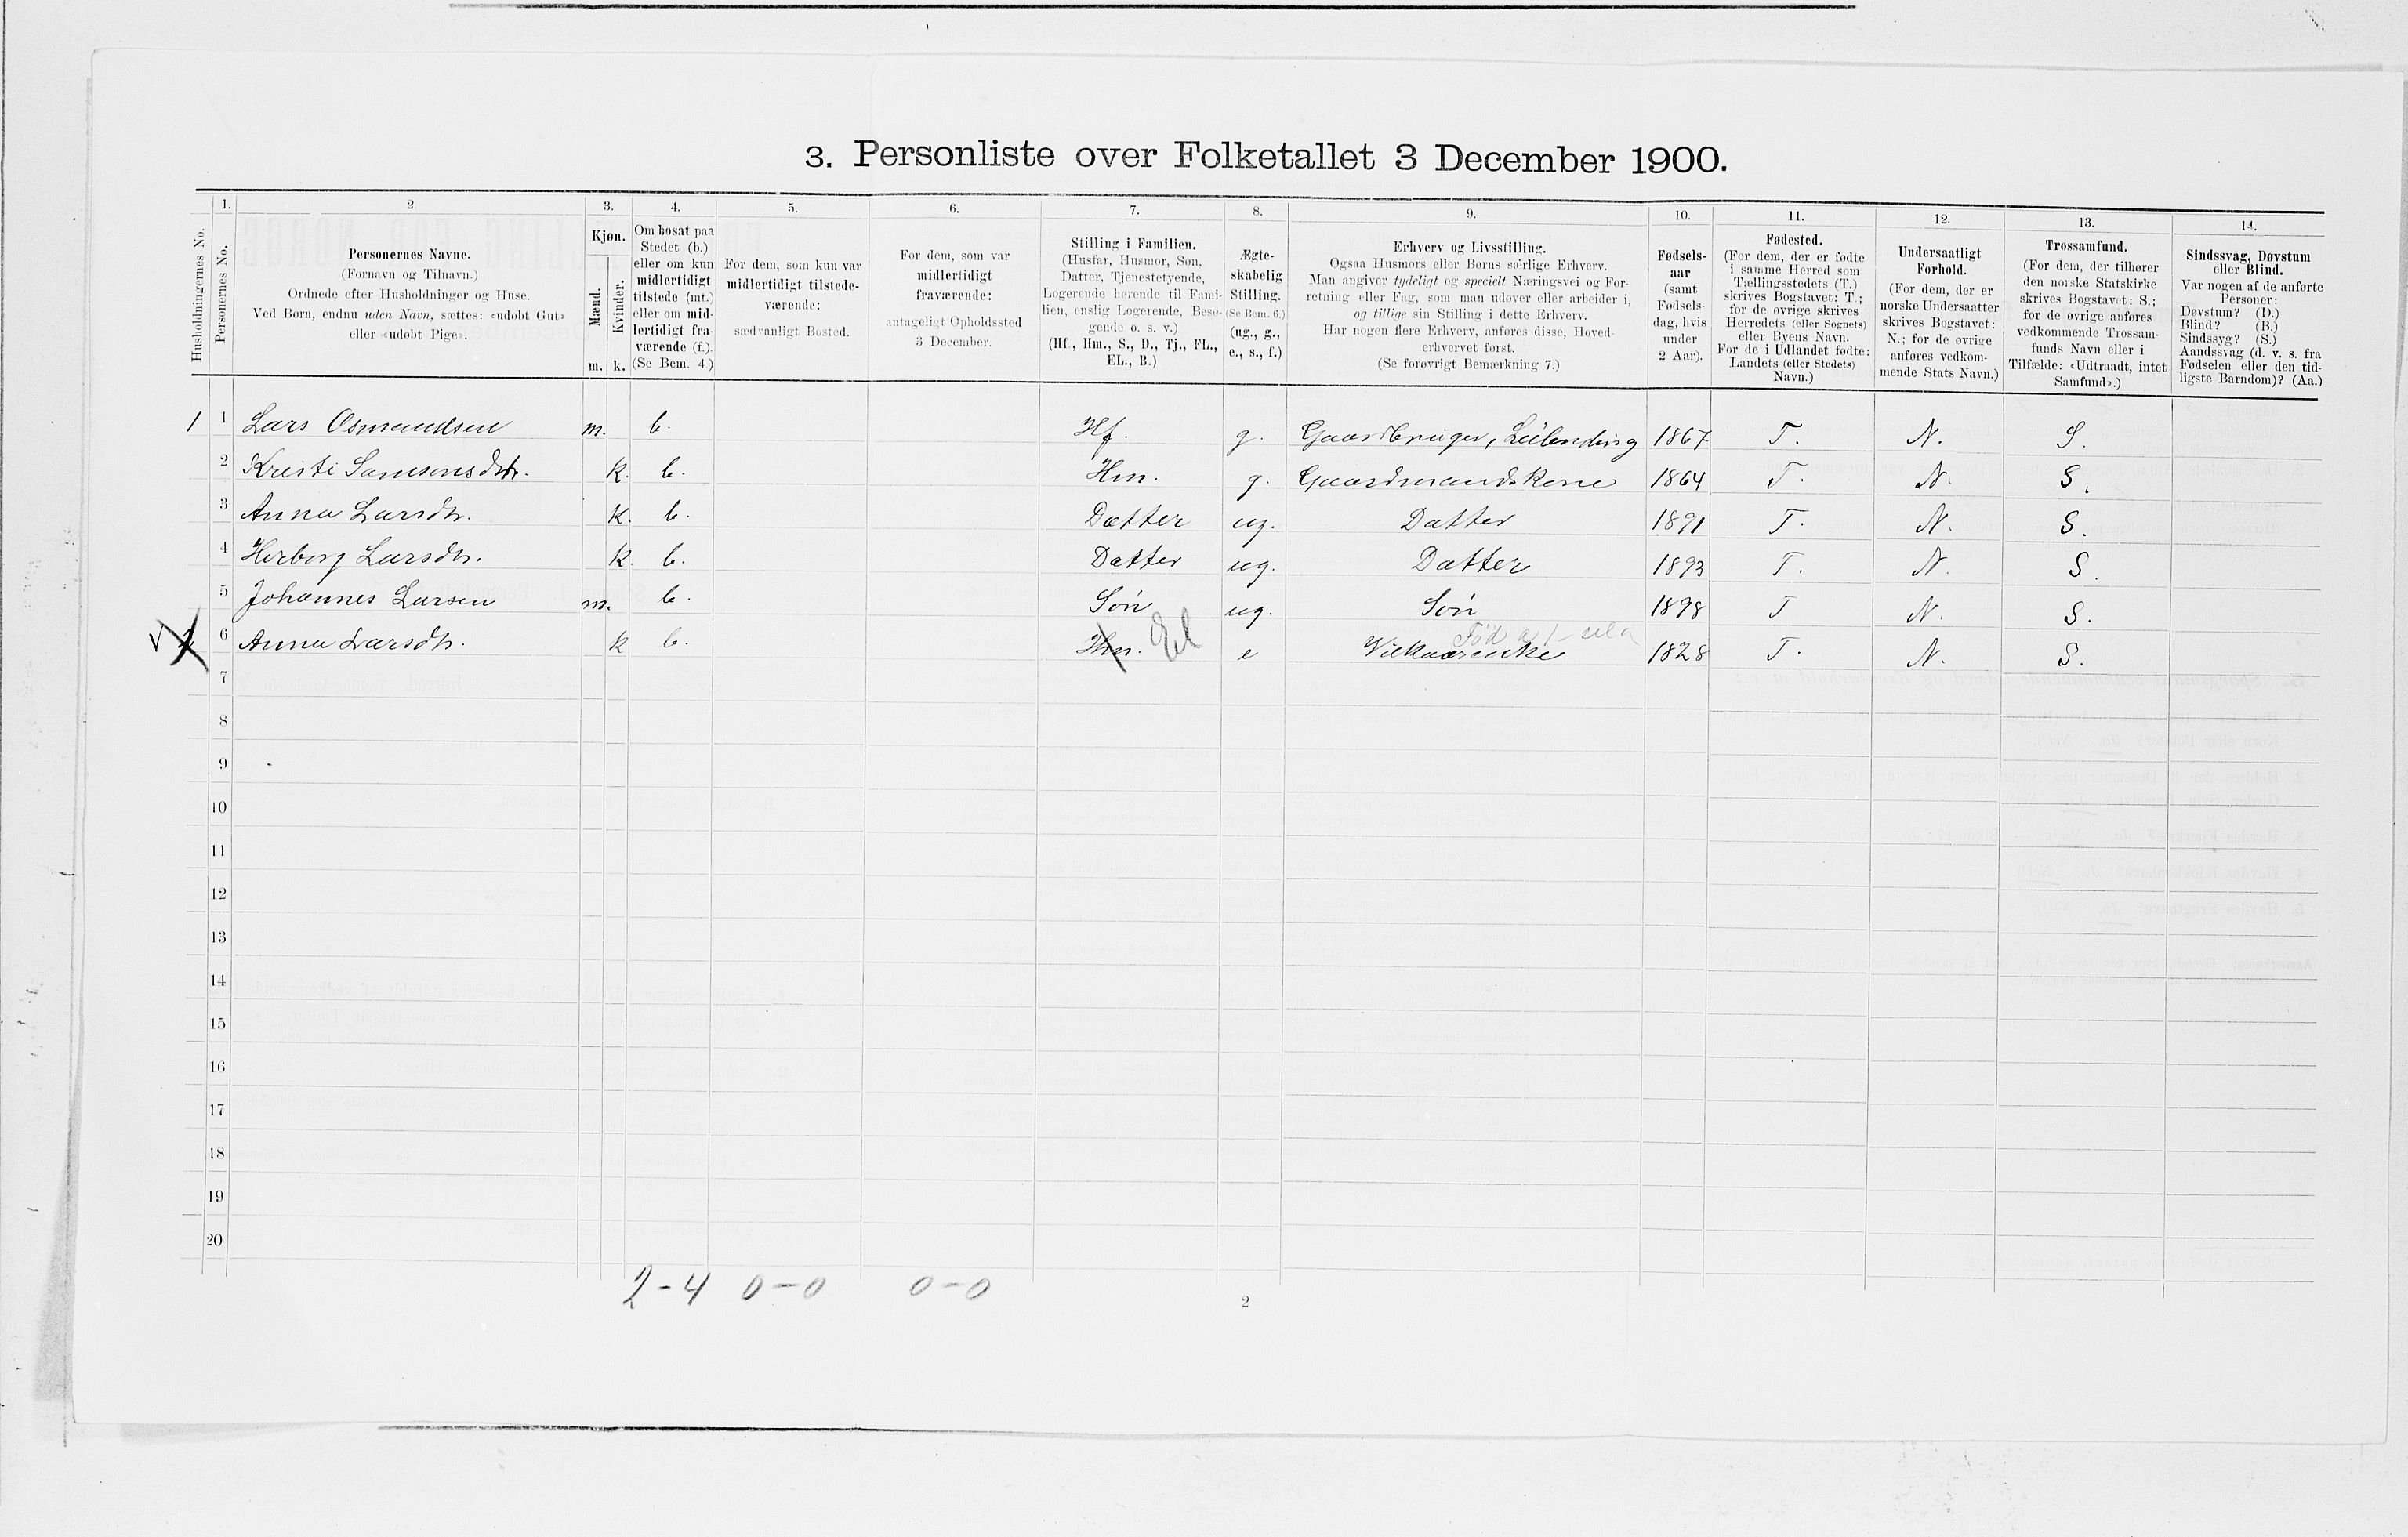 3. Personliste over Folketallet 3 December 1900.
1. 2. 3. 4. 5. 6. 7. 8. 9. 10. 11. 12. 13. 14.
Husholdningernes No.
Personernes No.
Personernes Navne.
(Fornavn og Tilnavn.)
Ordnede efter Husholdninger og Huse.
Ved Børn, endnu uden Navn, sættes: «udøbt Gut»
eller «udøbt Pige».
Kjøn.
Mænd.
Kvinder.
m. k.
Om bosat paa
Stedet (b.)
eller om kun
midlertidigt
tilstede (mt.)
eller om mid-
lertidigt fra-
værende (f.).
(Se Bem. 4.)
For dem, som kun var
midlertidigt tilstede-
værende:
sædvanligt Bosted.
For dem, som var
midlertidigt
fraværende:
antageligt Opholdssted
3 December.
Stilling i Familien.
(Husfar, Husmor, Søn,
Datter, Tjenestetyende,
Logerende hørende til Fami-
lien, enslig Logerende, Besø-
gende o. s. v.)
(Hf., Hm., S., D., Tj., FL.,
EL., B.)
Ægte-
skabelig
Stilling.
(Se Bem. 6.)
(ug., g.,
e., s., f.)
Erhverv og Livsstilling.
Ogsaa Husmors eller Børns særlige Erhverv.
Man angiver tydeligt og specielt Næringsvei og For-
retning eller Fag, som man udøver eller arbeider i,
og tillige sin Stilling i dette Erhverv.
Har nogen flere Erhverv, anføres disse, Hoved-
erhvervet først.
(Se forøvrigt Bemærkning 7.)
Fødsels-
aar
(samt
Fødsels-
dag, hvis
under
2 Aar).
Fødested.
(For dem, der er fødte
i samme Herred som
Tællingsstedets (T.)
skrives Bogstavet: T.;
for de øvrige skrives
Herredets (eller Sognets)
eller Byens Navn.
For de i Udlandet fødte:
Landets (eller Stedets)
Navn.)
Undersaatligt
Forhold.
(For dem, der er
norske Undersaatter
skrives Bogstavet:
N.; for de øvrige
anføres vedkom-
mende Stats Navn.)
Trossamfund.
(For dem, der tilhører
den norske Statskirke
skrives Bogstavet: S.;
for de øvrige anføres
vedkommende Trossam-
funds Navn eller i
Tilfælde: «Udtraadt, intet
Samfund».)
Sindssvag, Døvstum
eller Blind.
Var nogen af de anførte
Personer:
Døvstum? (D.)
Blind? (B.)
Sindssyg? (S.)
Aandssvag (d. v. s. fra
Fødselen eller den tid-
ligste Barndom)? (Aa.)
1 1 Lars Osmundsen m. b. Hf. g. Gaardbruger, Leilending 1867 T. N. S.
2 Kristi Samsonsdtr. k. b. Hm. g. Gaardmandskone 1864 T. N. S.
3 Anna Larsdtr. k. b. Datter ug. Datter 1891 T. N. S.
4 Herborg Larsdtr. k. b. Datter ug. Datter 1893 T. N. S.
5 Johannes Larsen m. b. Søn ug. Søn 1898 T N. S.
2 6 Anna Larsdtr. k b. Hm. El e Vilkaarenke 1828 T. N. S.
7
8
9
10
11
12
13
14
15
16
17
18
19
20
2-4 0-0 0-0
2